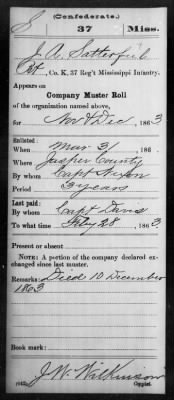 (Confederate.)
S 37 Miss.
J. A. Satterfield
Pvt, Co. K, 37 Reg't Mississippi Infantry.
Appears on
Company Muster Roll
of the organization named above,
for Nov & Dec, 1863
Enlisted:
When Mar 31, 186
Where Jasper County
By whom Capt Nixon
Period 3 years
Last paid:
By whom Capt Davis
To what time Feby 28, 1863.
Present or absent
NOTE: A portion of the company declared ex-
changed since last muster.
Remarks: Died 10 December
1863
Book mark:
J. W. Wilkinson
(642) Copyist.